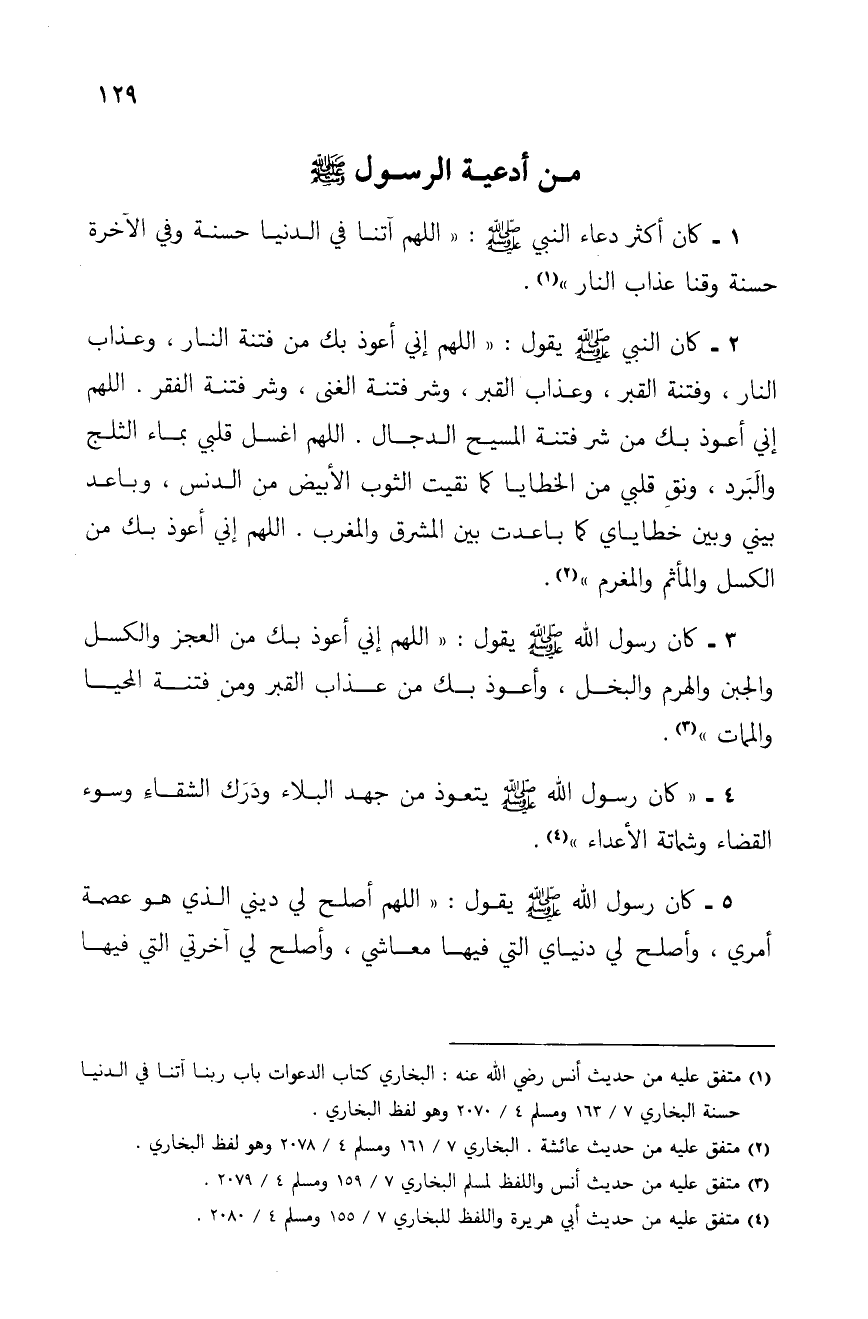 ١٢٩
مـن أدعيـة الرسـول ﷺ
١ ـ كان أكثر دعاء النبي ﷺ : « اللهم آتنـا في الـدنيـا حسنـة وفي الآخرة
حسنة وقنا عذاب النار »(١) .
٢ ـ كان النبي ﷺ يقول : « اللهم إني أعوذ بك من فتنة النـار ، وعـذاب
النار ، وفتنة القبر ، وعـذاب القبر ، وشر فتنـة الغنى ، وشر فتنـة الفقر . اللهم
إني أعـوذ بـك من شر فتنـة المسيـح الـدجـال . اللهم اغسـل قلبي بمـاء الثلـج
والبَرد ، ونقِ قلبي من الخطايـا كما نقيت الثوب الأبيض من الـدنس ، وبـاعـد
بيني وبين خطـايـاي كما بـاعـدت بين المشرق والمغرب . اللهم إني أعوذ بـك من
الكسل والمأثم والمغرم »(٢) .
٣ ـ كان رسول الله ﷺ يقول : « اللهم إني أعوذ بـك من العجز والكسل
والجبن والهرم والبخـل ، وأعـوذ بـك من عـذاب القبر ومن فتنـة المحيـا
والممات »(٣) .
٤ ـ « كان رسـول الله ﷺ يتعـوذ من جهـد البـلاء ودَرَك الشقـاءِ وسـوء
القضاء وشماتة الأعداء »(٤) .
٥ ـ كان رسول الله ﷺ يقـول : « اللهم أصلـح لي ديني الـذي هـو عصمـة
أمري ، وأصلـح لي دنيـاي التي فيهـا معـاشي ، وأصلـح لي آخرتي التي فيهـا
(١) متفق عليه من حديث أنس رضي الله عنه : البخاري كتاب الدعوات باب ربنـا آتنـا في الـدنيـا
حسنة البخاري ٧ / ١٦٣ ومسلم ٤ / ٢٠٧٠ وهو لفظ البخاري .
(٢) متفق عليه من حديث عائشة . البخاري ٧ / ١٦١ ومسلم ٤ / ٢٠٧٨ وهو لفظ البخاري .
(٣) متفق عليه من حديث أنس واللفظ لمسلم البخاري ٧ / ١٥٩ ومسلم ٤ / ٢٠٧٩ .
(٤) متفق عليه من حديث أبي هريرة واللفظ للبخاري ٧ / ١٥٥ ومسلم ٤ / ٢٠٨٠ .